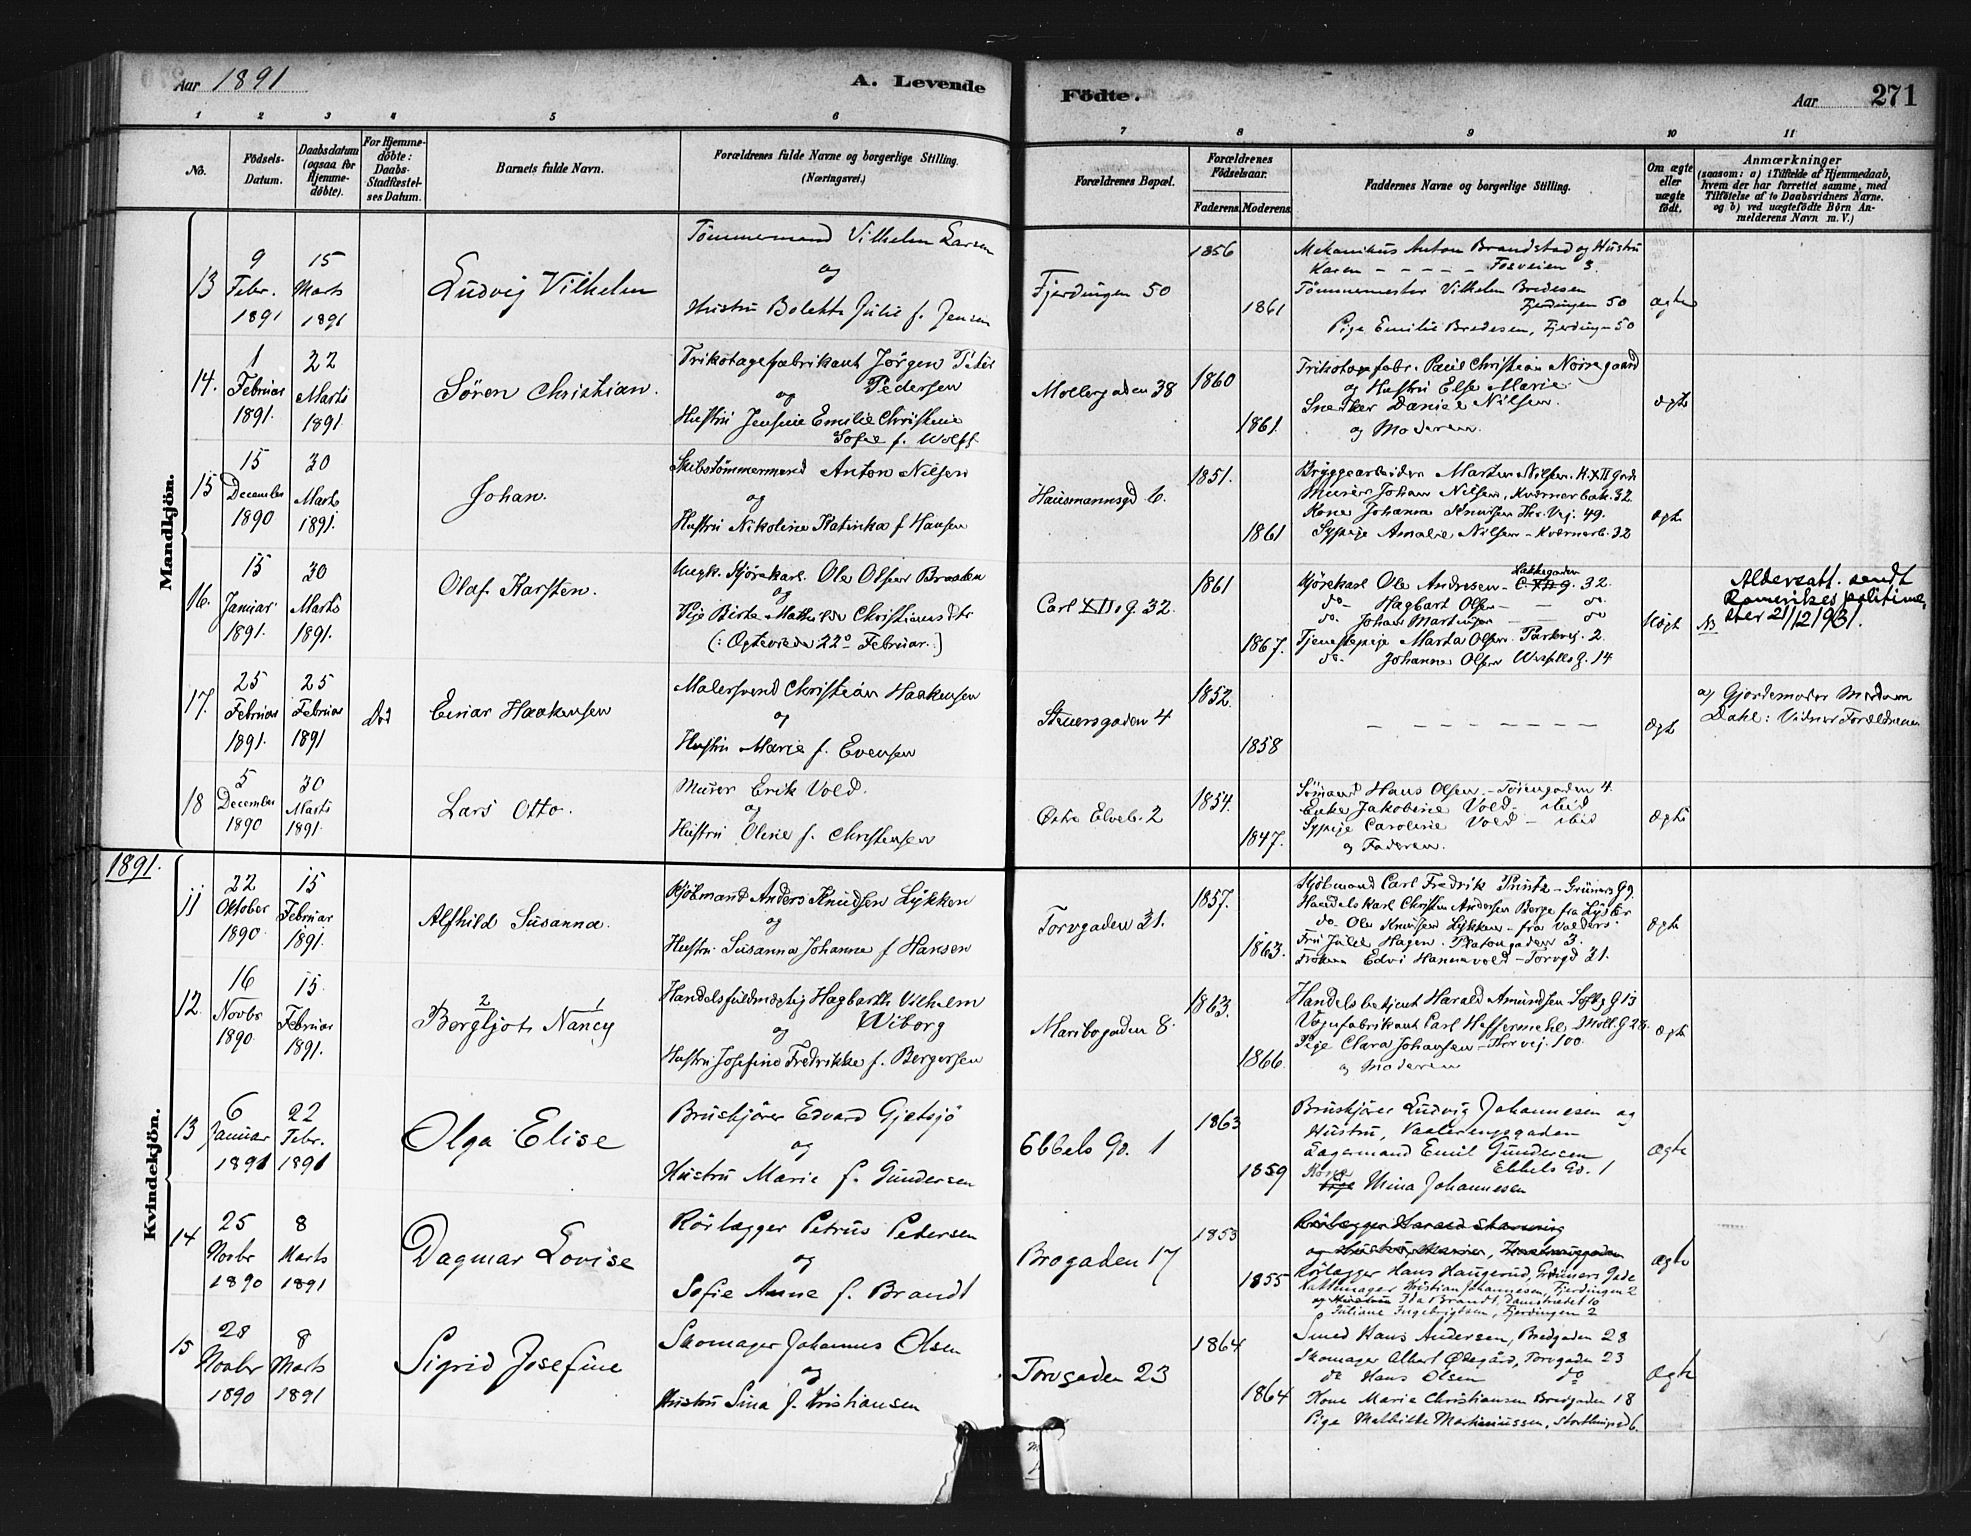 Aar 1891
A. Levende
Födte.
Aar
271
1 2 3 4 5 6 7 8 9 10 11
No.
Födsels-
Datum.
Daabsdatum
(ogsaa for
Hjemme-
döbte).
For Hjemme-
döbte:
Daabs-
Stadfæstel-
ses Datum.
Barnets fulde Navn.
Forældrenes fulde Navne og borgerlige Stilling.
(Næringsvei.)
Forældrenes Bopæl.
Forældrenes
Födselsaar.
Faderens.
Moderens.
Faddernes Navne og borgerlige Stilling.
Om ægte
eller
uægte
födt.
Anmærkninger
(saasom: a) i Tilfælde af Hjemmedaab,
hvem der har forrettet samme, med
Tilföielse af to Daabsvidners Navne.
og b) ved uægtefödte Börn An-
melderens Navn m. V.)
Mandkjön.
13
9
Febr.
1891
15
Marts
1891
Ludvig Vilhelm
Tömmermand Vilhelm Larsen
og
Hustru Bolette Julie f. Jensen
Fjerdingen 50
1856
1861
Mekanikus Anton Brandstad og Hustru
Karen – – – – – Tosveien 3.
Tömmermester Vilhelm Bredesen
Fjerdingen 50
Pige Emilie Bredesen, Fjerdingen 50
Ægte
14.
1
Februar
1891.
22
Marts
1891.
Sören Christian.
Trikotagefabrikant Jörgen Peter
Pedersen
og
Hustru Jensine Emilie Christine
Sofie f. Wolff
Möllergaden 38
1860
1861.
Trikotagefabr. Paul Christian Nörregaard
og Hustru Else Marie
Snedker Daniel Nilsen.
og Moderen.
ægte
15
15
December
1890
30
Marts
1891.
Johan.
Skibstömmermand Anton Nilsen
og
Hustru Nikoline Katinka f Hansen
Hausmannsgd 6.
1851.
1861
Bryggearbeider Marten Nilsen. K XII Gade
Murer Johan Nilsen, Kværnerbak. 32.
Kone Johanne Knudsen Thr. Vej. 49.
Sypige Amalie Nilsen – Kværnerb. 32
ægte
16.
15
Januar
1891.
30
Marts
1891.
Olaf Karsten.
Ungk. Kjörekarl. Ole Olsen Braaten
og
Pige Birte Mathilde Christiansdtr
(: Ægteviede 22º Februar.)
Carl XII g. 32.
1861
1867.
Kjörekarl Ole Andresen – Lakkegaden 32.
do – Hagbart Olsen – – do
do. Johan Martinsen – – do
Tjenestepige Marta Olsen. Parkvej. 2.
do. Johanne Olsen Wessells g. 14
Uægte
NB
Aldersatt. sendt
Romerikes politime-
ster 21/12 1931.
17.
25
Februar
1891.
25
Februar
1891
Död
Einar Haakensen
Malersvend Christian Haakensen
og
Hustru Marie f. Evensen
Steuersgaden 4
1852.
1858
– – – – – – – –
ægte
a) Gjordemoder Madam
Dahl: Vidner Forældrene
18
5
December
1890
30
Marts
1891.
Lars Otto.
Murer Erik Vold.
og
Hustru Oline f. Christensen
Östre Elveb. 2
1854.
1847.
Sömand Hans Olsen. – Töiengaden 4.
Enke Jakobine Vold – ibid
Sypige Caroline Vold – ibid
og Faderen.
ægte
1891.
Kvindekjön.
11
22
Oktober
1890.
15
Februar
1891.
Alfhild Susanna.
Kjöbmand Anders Knudsen Lykken
og
Hustru Susanna Johanne f Hansen
Torvgaden 31.
1857.
1863.
Kjöbmand Carl Fredrik Printz – Grüners G 9.
Handelskarl Christen Andersen Berge fra Lyster
do. Ole Knudsen Lykken – fra Valders
Fru Julie Hagen. Platousgaden 3.
Fröken Edvi Hannevold – Torvgd 31.
ægte
12.
16
Novbr
1890.
15.
Februar
1891.
2 1
Borgljot Nancy
Handelsfuldmægtig Hagbarth Vilhelm
Wiborg
og
Hustru Josefine Fredrikke f. Bergersen
Maribogaden 8.
1863.
1866.
Handelsbetjent Harald Amundsen Sofieg G 13
Vognfabrikant Carl Heffermehl Möll. G 28
Pige Clara Johansen – Thr vej. 100.
og Moderen
ægte
13
6
Januar
1891
22
Febr.
1891
Olga Elise
Bruskjörer Edvard Gjetsjö
og
Hustru Marie f. Gundersen
Ebbels Ga. 1
1863
1859
Bruskjörer Ludvig Johannesen og
Hustru, Vaalerenggaden
Lagermand Emil Gundersen
Ebbels Ga. 1
Kone
Pige Mina Johannesen
Ægte
14
25
Novbr
1890
8
Marts
1891
Dagmar Lovise
Rörlægger Petrus Pedersen
og
Sofie Anne f. Brandt
Brogaden 17
1853
1855
Rörlægger Harald
og Hustru
Rörlægger Hans Haugerud, Grüners Gade
Kattemager Kristian Johannesen, Fjerdingen 2
og Hustru Ida Brandt, Damstrædet 10
Juliane Ingebrigtsen, Fjerdingen 2
Ægte
15
28
Novbr
1890
8
Marts
1891
Sigrid Josefine
Skomager Johannes Olsen
og
Hustru Lina f. Kristiansen
Torvgaden 23
1864
1864
Smed Hans Andersen, Bredgaden 28
Skomager Albert Ødegård, Torvgaden 23
do Hans Olsen do
Kone Marie Christiansen Bredgaden 18
Pige Mathilde Martiniussen, Storthingsgd 6.
Ægte